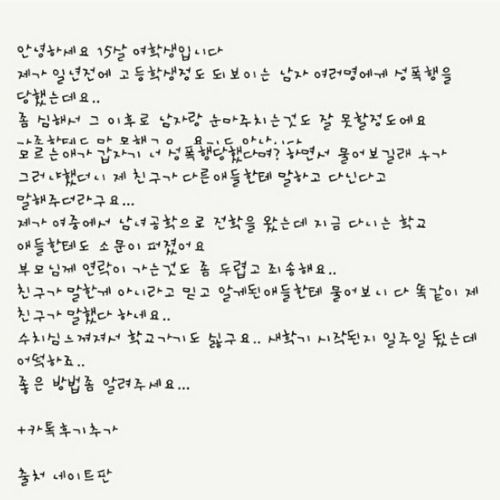 안녕하세요 15살 여학생입니다
제가 일년전에 고등학생정도 되보이는 남자 여러명에게 성폭행을
당했는데요..
좀 심해서 그 이후로 남자랑 눈마주치는것도 잘 못할정도에요
모르는애가 갑자기 너 성폭행당했다며? 하면서 물어보길래 누가
그러냐했더니 제 친구가 다른애들한테 말하고 다닌다고
말해주더라구요...
제가 여중에서 남녀공학으로 전학을 왔는데 지금 다니는 학교
애들한테도 소문이 퍼졌어요
부모님께 연락이 가는것도 좀 두렵고 죄송해요..
친구가 말한게 아니라고 믿고 알게된애들한테 물어보니 다 똑같이 제
친구가 말했다 하네요..
수치심느껴져서 학교가기도 싫구요.. 새학기 시작된지 일주일 됐는데
어떡하죠..
좋은 방법좀 알려주세요...
+카톡후기추가
출처 네이트판